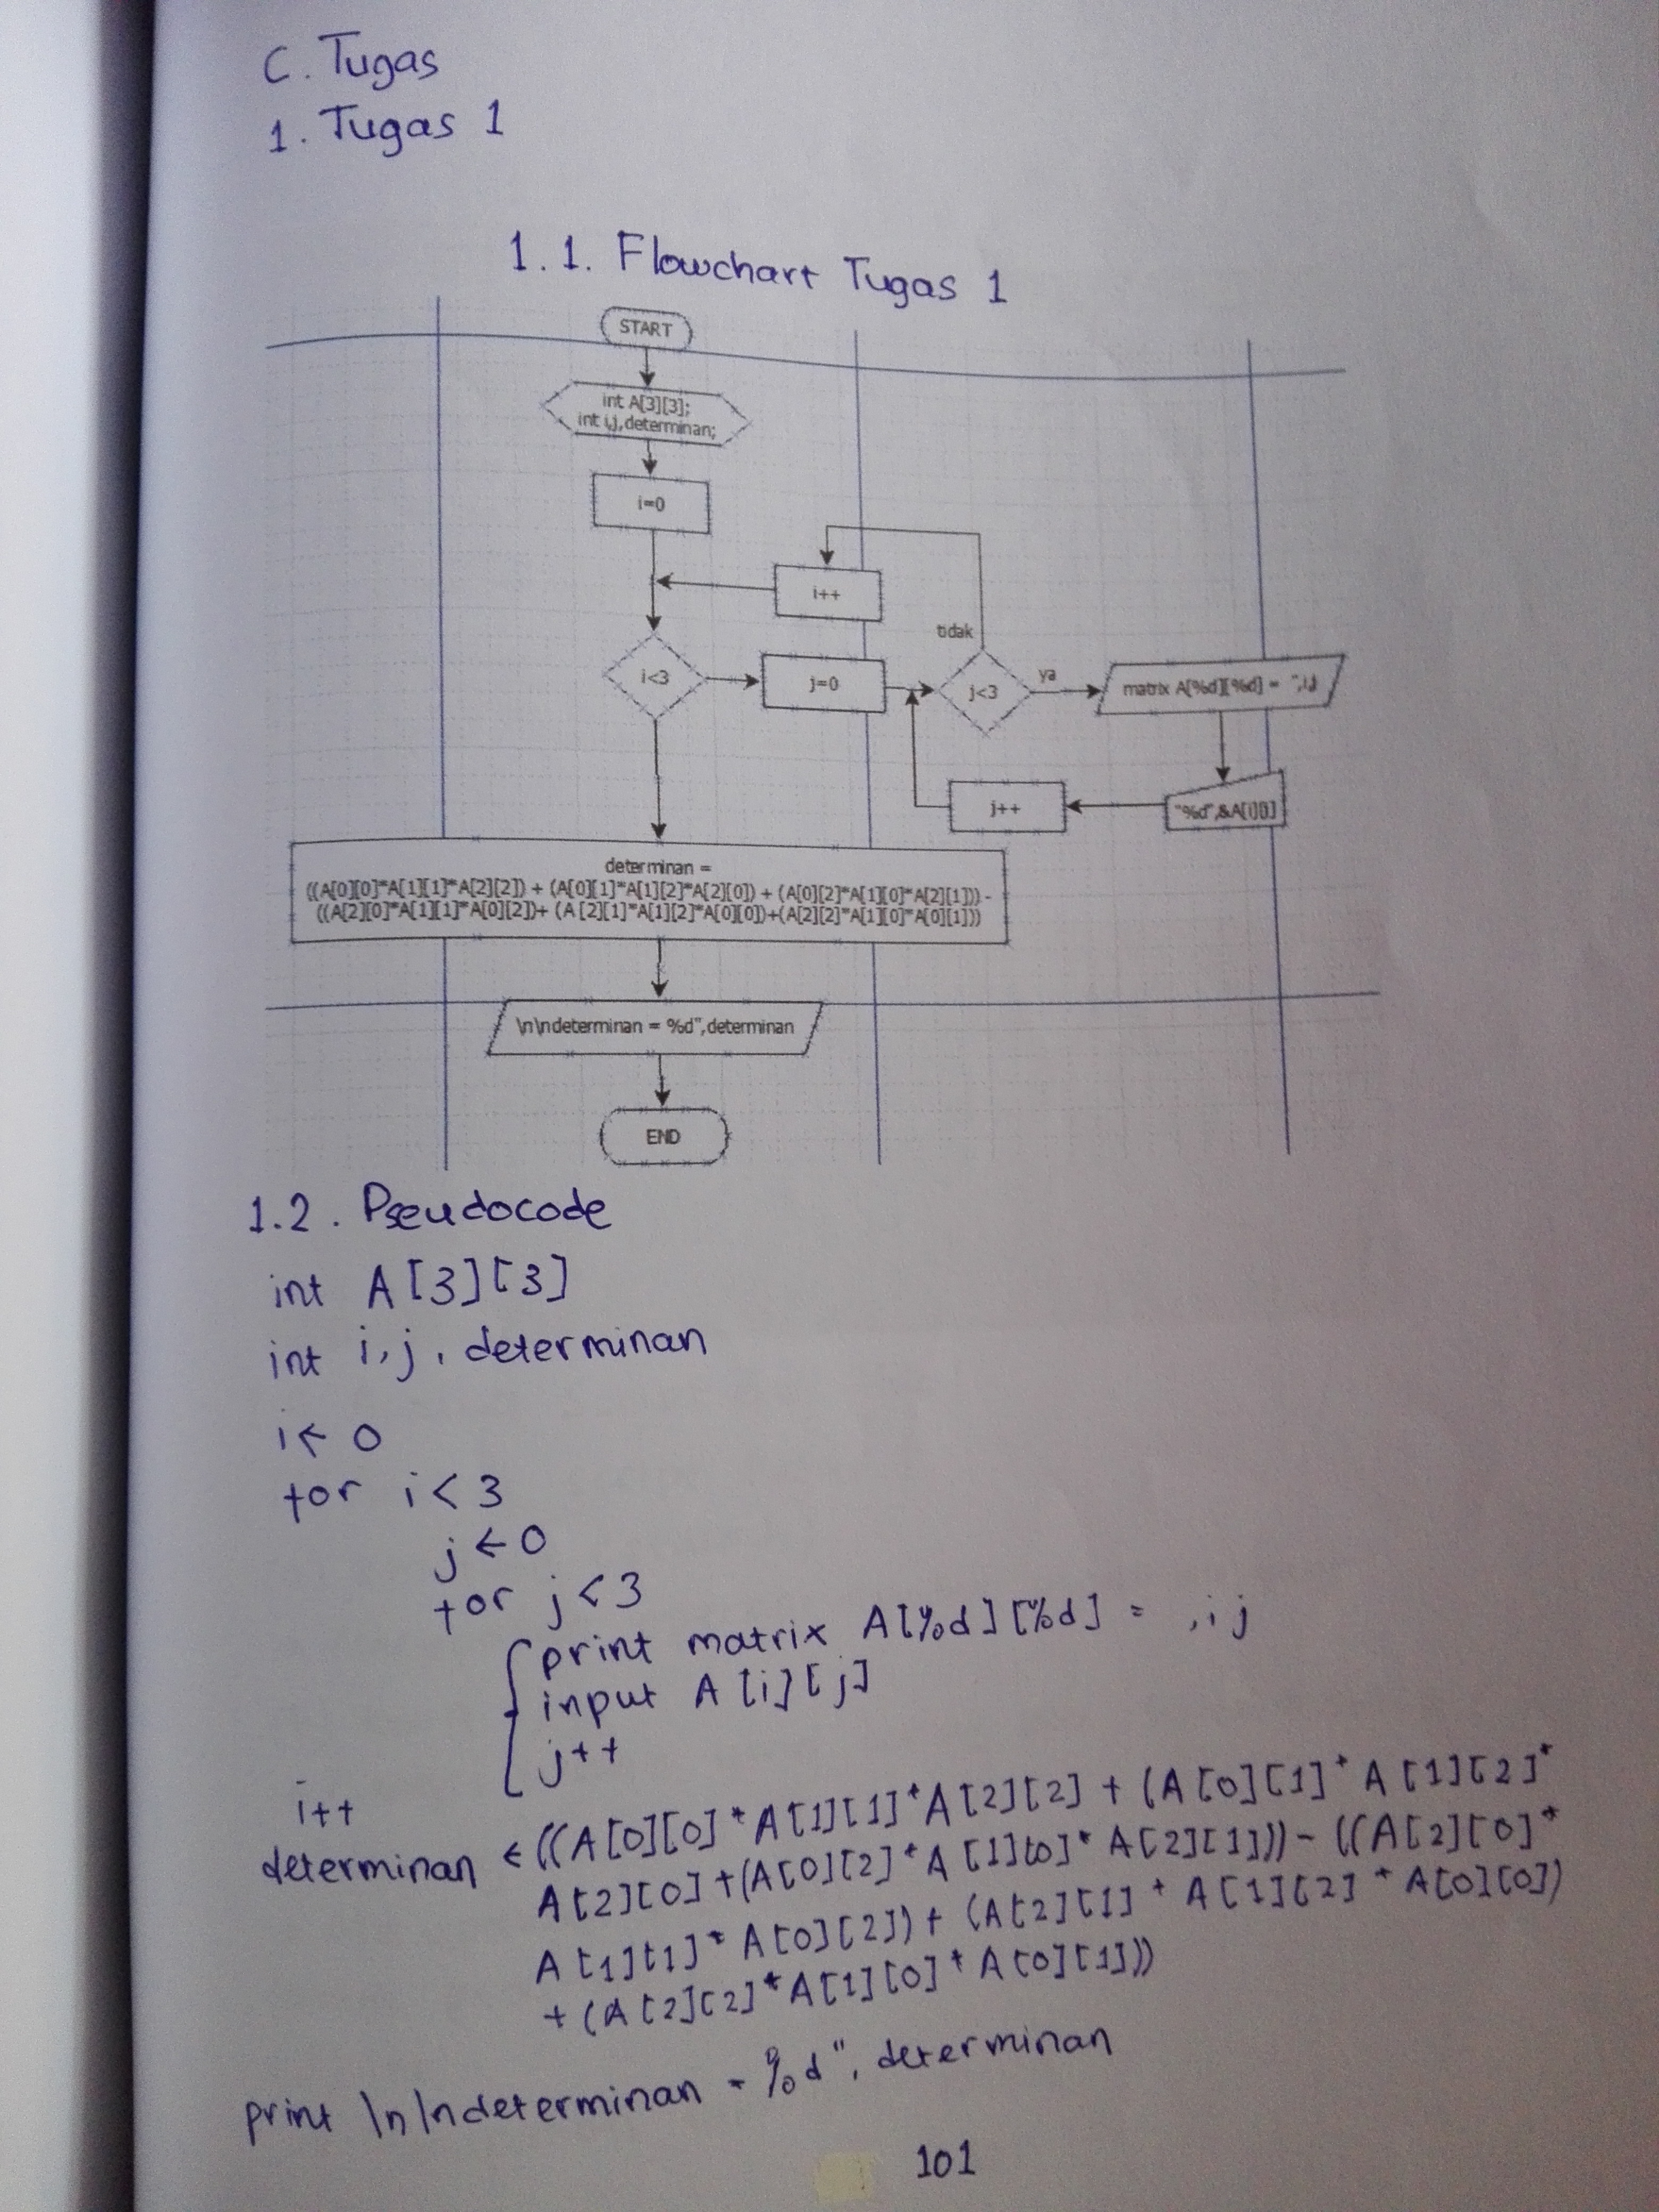 C. Tugas
1. Tugas 1
1.1. Flowchart Tugas 1
START
int A[3][3];
int i,j,determinan;
i=0
i++
tidak
i<3
j=0
j<3
ya
matrix A[%d][%d] = ",i,j
j++
"%d",&A[i][j]
determinan =
((A[0][0]*A[1][1]*A[2][2]) + (A[0][1]*A[1][2]*A[2][0]) + (A[0][2]*A[1][0]*A[2][1])) -
((A[2][0]*A[1][1]*A[0][2])+ (A [2][1]*A[1][2]*A[0][0])+(A[2][2]*A[1][0]*A[0][1]))
\n\ndeterminan = %d",determinan
END
1.2. Pseudocode
int A[3][3]
int i,j, determinan
i ← 0
for i < 3
j ← 0
for j < 3
print matrix A[%d][%d] = ,i j
input A[i][j]
j++
i++
determinan ← ((A[0][0]*A[1][1]*A[2][2] + (A[0][1]*A[1][2]*
A[2][0] +(A[0][2]*A[1][0]*A[2][1])) - ((A[2][0]*
A[1][1]*A[0][2]) + (A[2][1]*A[1][2]*A[0][0])
+ (A[2][2]*A[1][0]*A[0][1]))
print \n\ndeterminan = %d", determinan
101